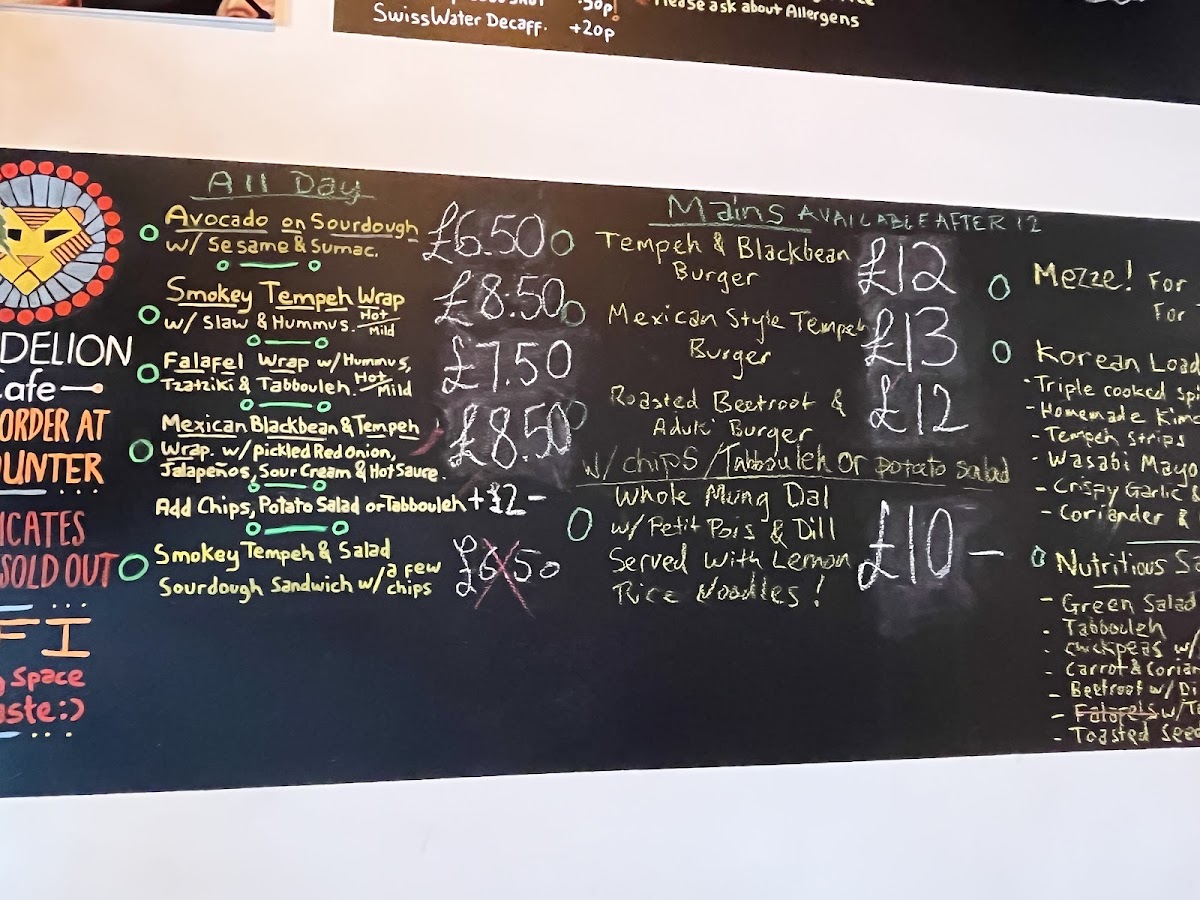 .50p!
SwissWater Decaff. +20p
Please ask about Allergens
DELION
Cafe
ORDER AT
UNTER
ICATES
SOLD OUT
FI
Space
aste:)
All Day
Avocado on Sourdough £6.50
w/ Sesame & Sumac.
Smokey Tempeh Wrap £8.50
w/ Slaw & Hummus. Hot/Mild
Falafel Wrap w/ Hummus, £7.50
Tzatziki & Tabbouleh. Hot/Mild
Mexican Blackbean & Tempeh £8.50
Wrap. w/ pickled Red Onion,
Jalapeños, Sour Cream & Hot Sauce.
Add Chips, Potato Salad or Tabbouleh + £2 -
Smokey Tempeh & Salad £6.50
Sourdough Sandwich w/ a few chips
Mains AVAILABLE AFTER 12
Tempeh & Blackbean £12
Burger
Mexican Style Tempeh £13
Burger
Roasted Beetroot & £12
Aduki Burger
w/ chips / Tabbouleh or potato salad
Whole Mung Dal £10 -
w/ Petit Pois & Dill
Served with Lemon
Rice Noodles!
Mezze! For
For
Korean Load
- Triple cooked
- Homemade Kim
- Tempeh Strips
- Wasabi Mayo
- Crispy Garlic
- Coriander &
Nutritious Sa
- Green Salad
- Tabbouleh
- chickpeas w/
- Carrot & Corian
- Beetroot w/ Di
- Falafels w/ T
- Toasted Seed